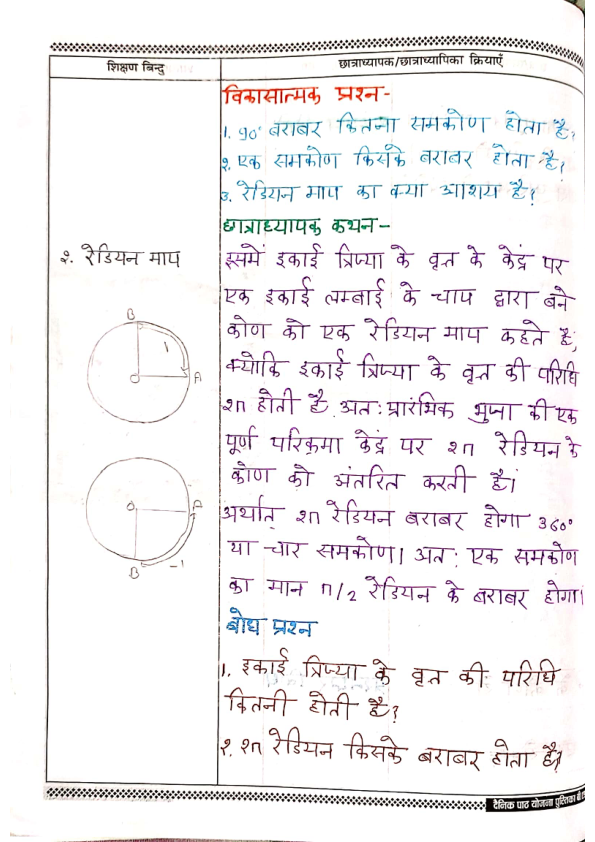 शिक्षण बिन्दु
छात्राध्यापक/छात्राध्यापिका क्रियाएँ
विकासात्मक प्रश्न-
1. 90° बराबर कितना समकोण होता है?
२. एक समकोण किसके बराबर होता है?
३. रेडियन माप का क्या आशय है?
छात्राध्यापक कथन-
२. रेडियन माप
इसमें इकाई त्रिज्या के वृत्त के केंद्र पर
एक इकाई लम्बाई के चाप द्वारा बने
कोण को एक रेडियन माप कहते है,
क्योकि इकाई त्रिज्या के वृत्त की परिधि
२π होती है अत: प्रारंभिक भुजा की एक
पूर्ण परिक्रमा केंद्र पर २π रेडियन के
कोण को अंतरित करती है।
अर्थात् २π रेडियन बराबर होगा 360°
या चार समकोण। अत: एक समकोण
का मान π/2 रेडियन के बराबर होगा।
B
1
O
A
O
A
B
-1
बोध प्रश्न
1. इकाई त्रिज्या के वृत्त की परिधि
कितनी होती है?
२. २π रेडियन किसके बराबर होता है?
दैनिक पाठ योजना पुस्तिका